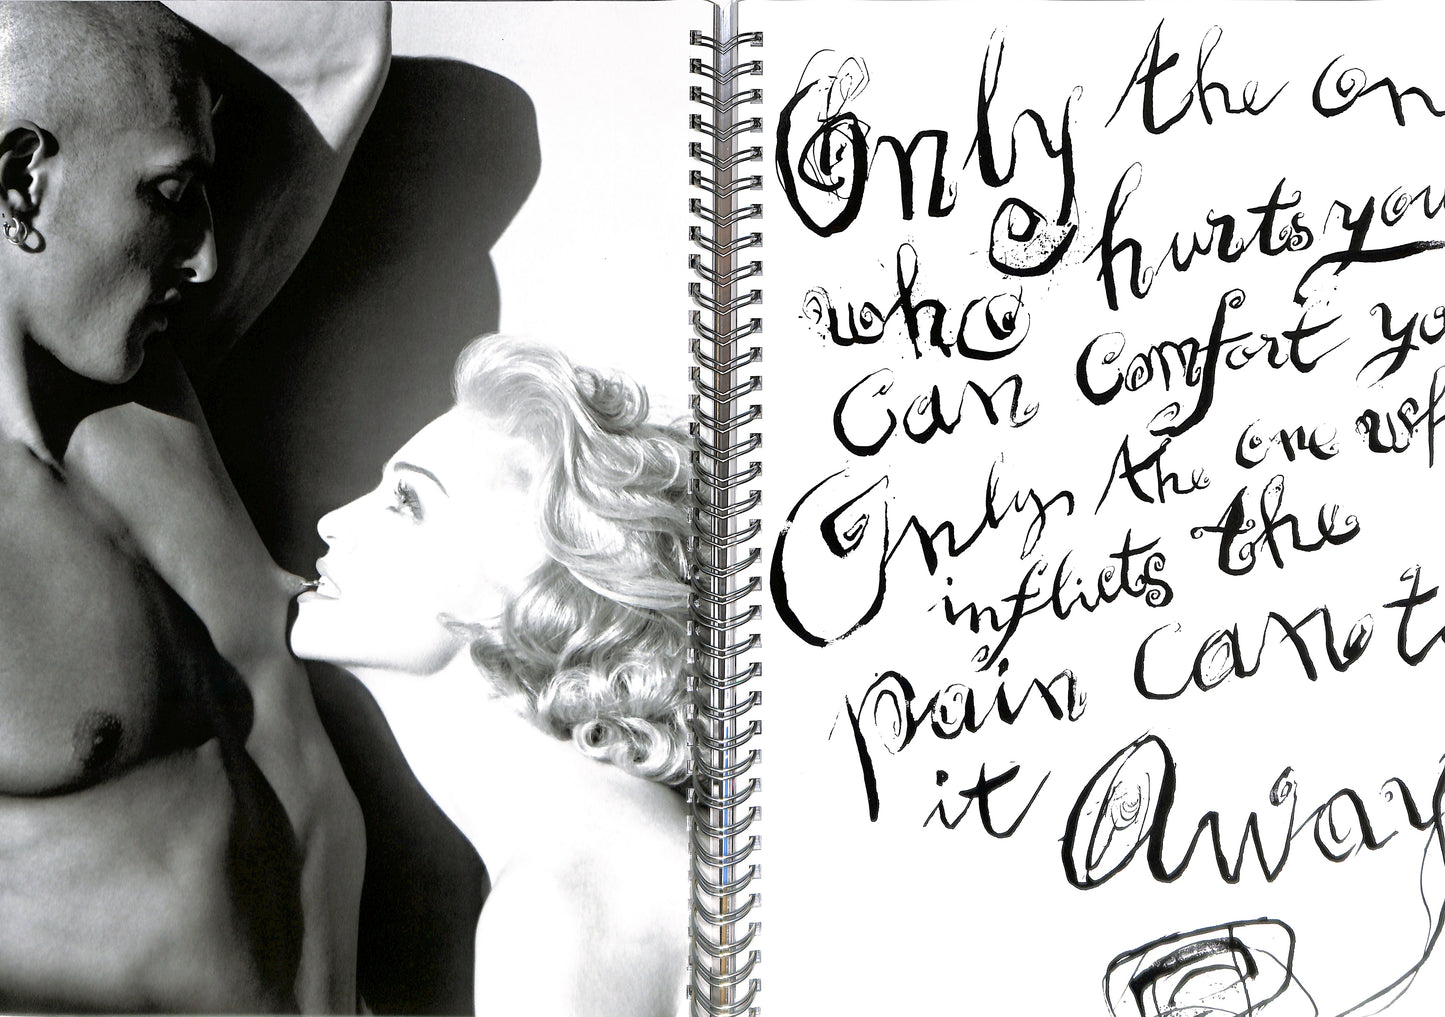 Only the on
hurts you
who
can comfort yo
Only the one wh
inflicts the
pain can t
it Away